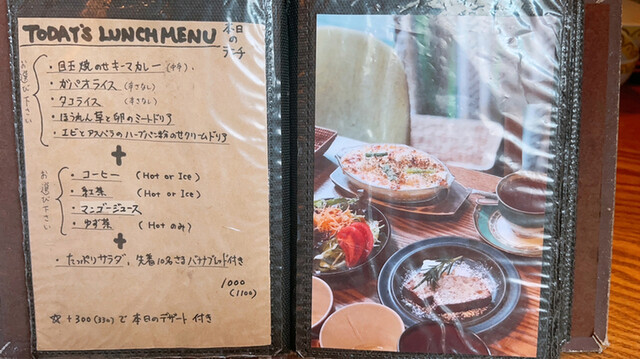 TODAY'S LUNCH MENU 本日のランチ
お選び下さい
・目玉焼のせキーマカレー (中辛)
・ガパオライス (辛さなし)
・タコライス (辛さなし)
・ほうれん草と卵のミートドリア
・エビとアスパラのハーブパン粉のせクリームドリア
+
お選び下さい
・コーヒー (Hot or Ice)
・紅茶 (Hot or Ice)
・マンゴージュース
・ゆず茶 (Hot のみ)
+
・たっぷりサラダ、先着10名さまバナナブレッド付き
1000
(1100)
☆ +300(330)で本日のデザート付き